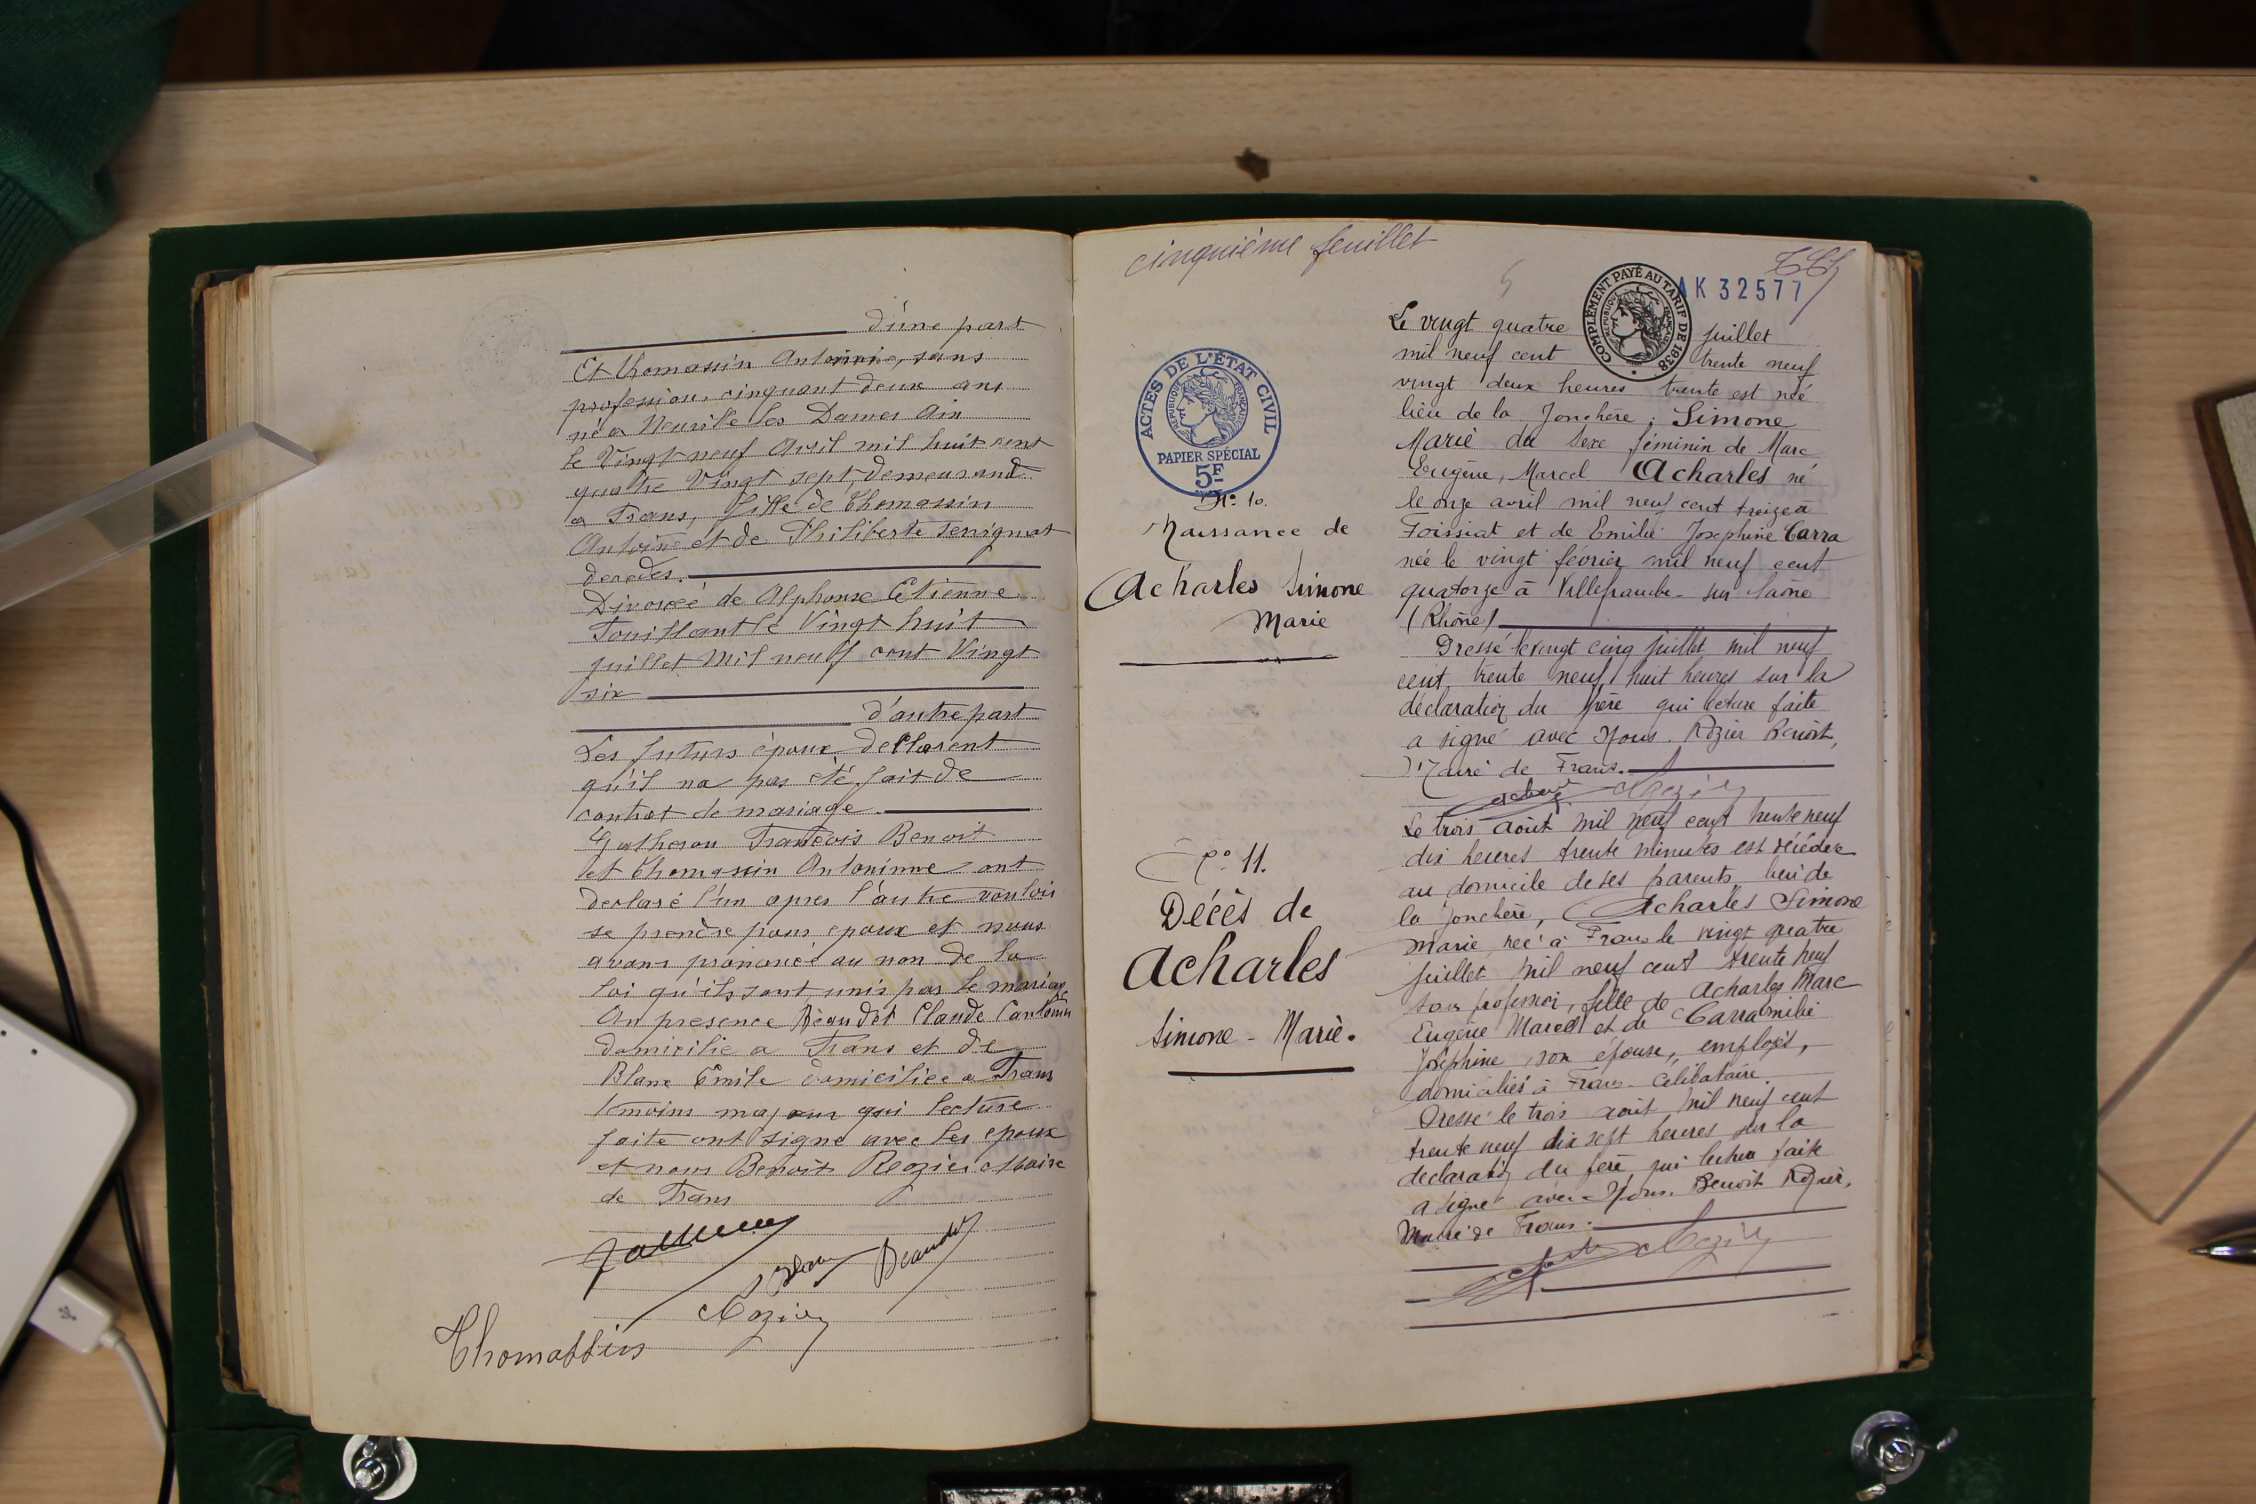 d'une part
Et Thomassin Antoinine, sans
profession, cinquant deux ans
né a Neuville les Dames Ain
le Vingt neuf Avril mil huit cent
quatre Vingt sept, demeurand
a Frans, fille de Thomassin
Antoine et de Philiberte
decedes.
Divorcée de Alphonse Etienne
le Vingt huit
juillet Mil neuf cent Vingt
six
d'autre part
Les futurs époux declarent
qu'il na pas été fait de
contrat de mariage.
Gatheron Francois Benoit
et Thomassin Antoninne ont
declaré l'un apres l'autre vouloir
se prendre pour epoux et nous
avons prononcé au non de la
loi qu'ils sont unis par le mariage
An presence Beaudet Claude
domicilie a Frans et de
Blanc Emile domiciliee a Frans
temoins majeur qui lecture
faite ont signe avec les epoux
et nous Benoit Rozier Maire
de Frans
Blanc Beaudet
Rozier
Thomassin
cinquième feuillet
5
AK 32577
COMPLÉMENT PAYÉ AU TARIF DE 1938
RÉPUBLIQUE FRANÇAISE
ACTES DE L'ÉTAT CIVIL
RÉPUBLIQUE FRANÇAISE
PAPIER SPÉCIAL
5F
N° 10.
Naissance de
Acharles Simone
Marie
Le vingt quatre juillet
mil neuf cent trente neuf
vingt deux heures trente est née
lieu de la Jonchère; Simone
Marie du sexe féminin de Marc
Eugène, Marcel Acharles né
le onze avril mil neuf cent treize à
Foissiat et de Emilie Josephine Carra
née le vingt février mil neuf cent
quatorze à Villefranche-sur Saône
(Rhône)
Dressé le vingt cinq juillet mil neuf
cent trente neuf huit heures sur la
déclaration du père qui lecture faite
a signé avec Nous. Rozier Benoit,
Maire de Frans.
Acharles Rozier
N° 11.
Décès de
Acharles
Simone - Marie.
Le trois août mil neuf cent trente neuf
dix heures trente minutes est décédée
au domicile de ses parents lieu de
la Jonchère, Acharles Simone
Marie née à Frans le vingt quatre
juillet mil neuf cent trente neuf
sans profession, fille de Acharles Marc
Eugène Marcel et de Carra Emilie
Joséphine, son épouse, employés,
domiciliés à Frans. Célibataire.
Dressé le trois août mil neuf cent
trente neuf dix sept heures sur la
declaration du père qui lecture faite
a signé avec Nous. Benoit Rozier,
Maire de Frans.
Rozier